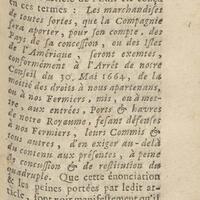 en ces termes : Les marchandises
de toutes sortes, que la Compagnie
fera aporter, pour son compte, des
Pays de sa concession, ou des Isles
de l'Amérique, seront exemtes,
conformément à l'Arrêt de notre
Conseil du 30. Mai 1664, de la
moitié des droits à nous apartenans,
ou à nos Fermiers, mis, ou à met-
tre, aux entrées, Ports & havres
de notre Royaume, fesant défenses
à nos Fermiers, leurs Commis &
tous autres, d'en exiger au-delà
du contenu aux présentes, à peine
de concussion & de restitution du
quadruple. Que cette énonciation
& les peines portées par ledit ar-
ticle, font manifestement qu'il